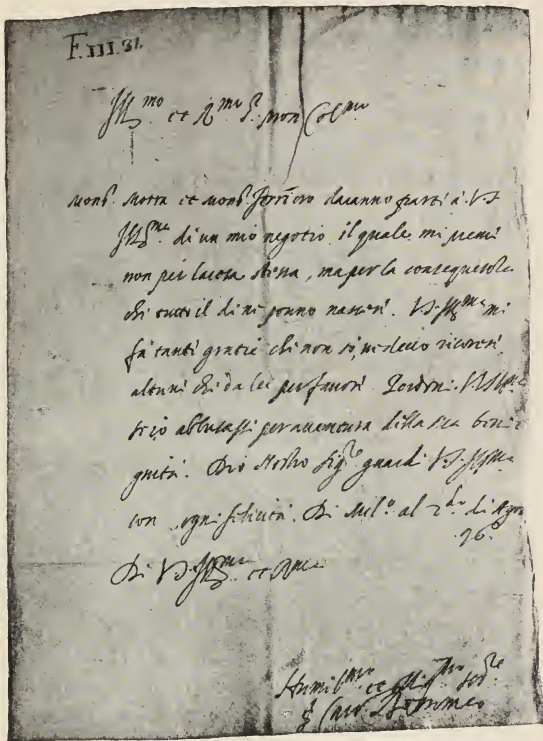 F. III. 31.
Ill.mo et R.mo S.r mon Col.mo
Mons.r Motta et Mons.r daranno parti à V.S.
Ill.ma di un mio negotio il quale mi premi
non per la cosa stessa, ma per la consequenza
chi tutto il di ne ponno nasceri. V.S. Ill.ma mi
fà tanti gratie chi non sò, ne devo ricoreri
altrui chi da lei per favori. V.S. Ill.ma
s'io abusassi per aventura della sua beni-
gnità. Dio Nostro Sig.re guardi V.S. Ill.ma
con ogni felicità. Di Mil.o al di
Di V.S. Ill.ma et R.ma
Humil.mo et ser.re